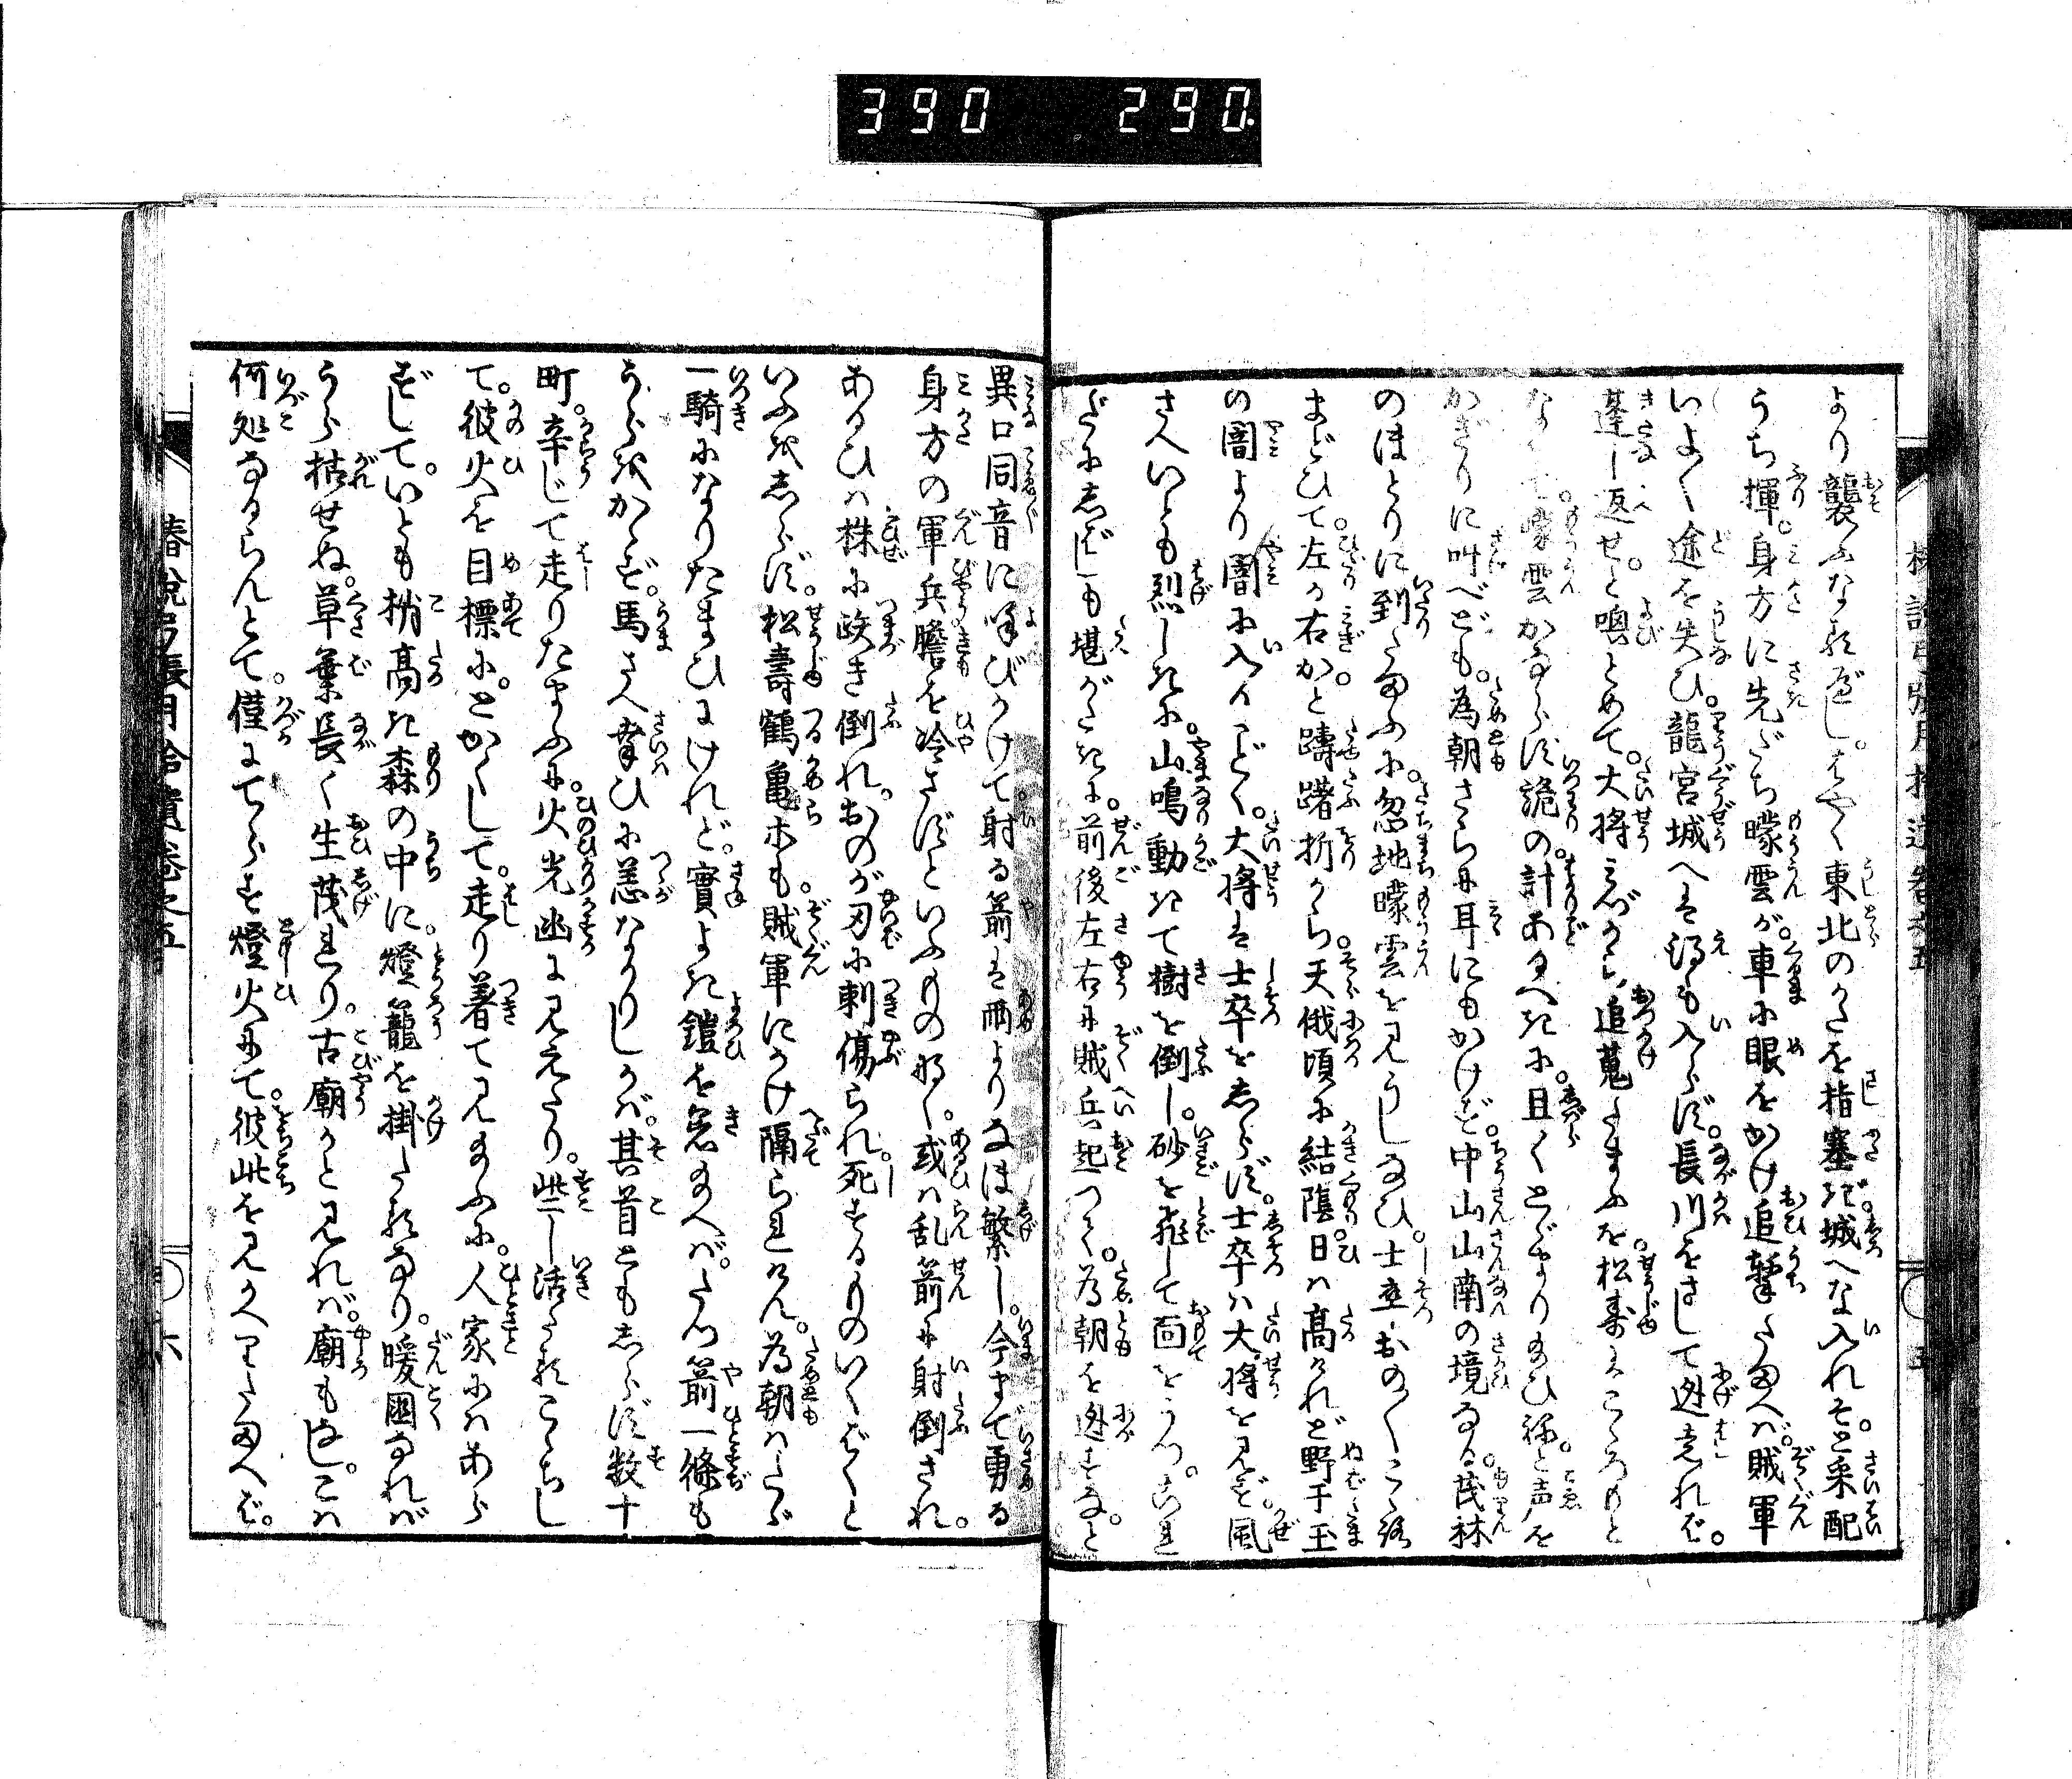 390 290.
より襲ふなるべし。はやく東北のかたを指塞ぎ。城へな入れそ。と采配
うち揮。身方に先だち曚雲が。車に眼をかけ追撃たまへば。賊軍
いよ〳〵途を失ひ。龍宮城へは得も入らず。長川をさして迯走れば。
蓬し返せ。と喚とめて。大将みづから追蒐たまふを。松寿はこゝろもと
なくて。曚雲かならず詭の。計あるべきに。且くとゞまり給ひね。と声を
かぎりに叫べども。為朝さらに耳にもかけず。中山山南の境なる。茂林
のほとりに到たまふに。忽地曚雲を見うしなひ。士卒おの〳〵こゝろ
まどひて。左か右か。と躊躇折から。天俄頃に結陰。日は高けれど野干玉
の闇より闇に入るごとく。大将は士卒をしらず。士卒は大将を見ず。風
さへいとも烈しきに。山鳴動きて樹を倒し。砂を飛して面をうつ。これ
だにしばしも堪がたきに。前後左右に賊兵起つゝ。為朝を迯すな。と
異口同音に呼びかけて射る箭は雨よりなほ繁し。今まで勇る
身方の軍兵膽を冷さずといふものなし。或は乱箭に射倒され。
あるひは株に跌き倒れ。おのが刃に刺傷られ。死するものいくばくと
いふをしらず。松壽鶴亀ホも。賊軍にかけ隔られけん。為朝はたゞ
一騎になりたまひにけれど。實よき鎧を着給へば。たつ箭一條も
うらをかゝず。馬さへ幸ひに恙なかりしかば。其首ともしらず数十
町。辛じて走りたまふに。火光幽に見えたり。些し活たるこゝちし
て。彼火を目標に。とかくして。走り着て見給ふに。人家にはあら
ずして。いとも梢高き森の中に。燈籠を掛たるなり。暖国なれば
うら枯せぬ。草葉長く生茂れり。古廟かと見れば。廟もなし。こは
何処なるらんとて。僅にてらす燈火にて。彼此を見かへりたまへば。
椿説弓張月拾遺巻之五
五
椿説弓張月拾遺巻之五
六